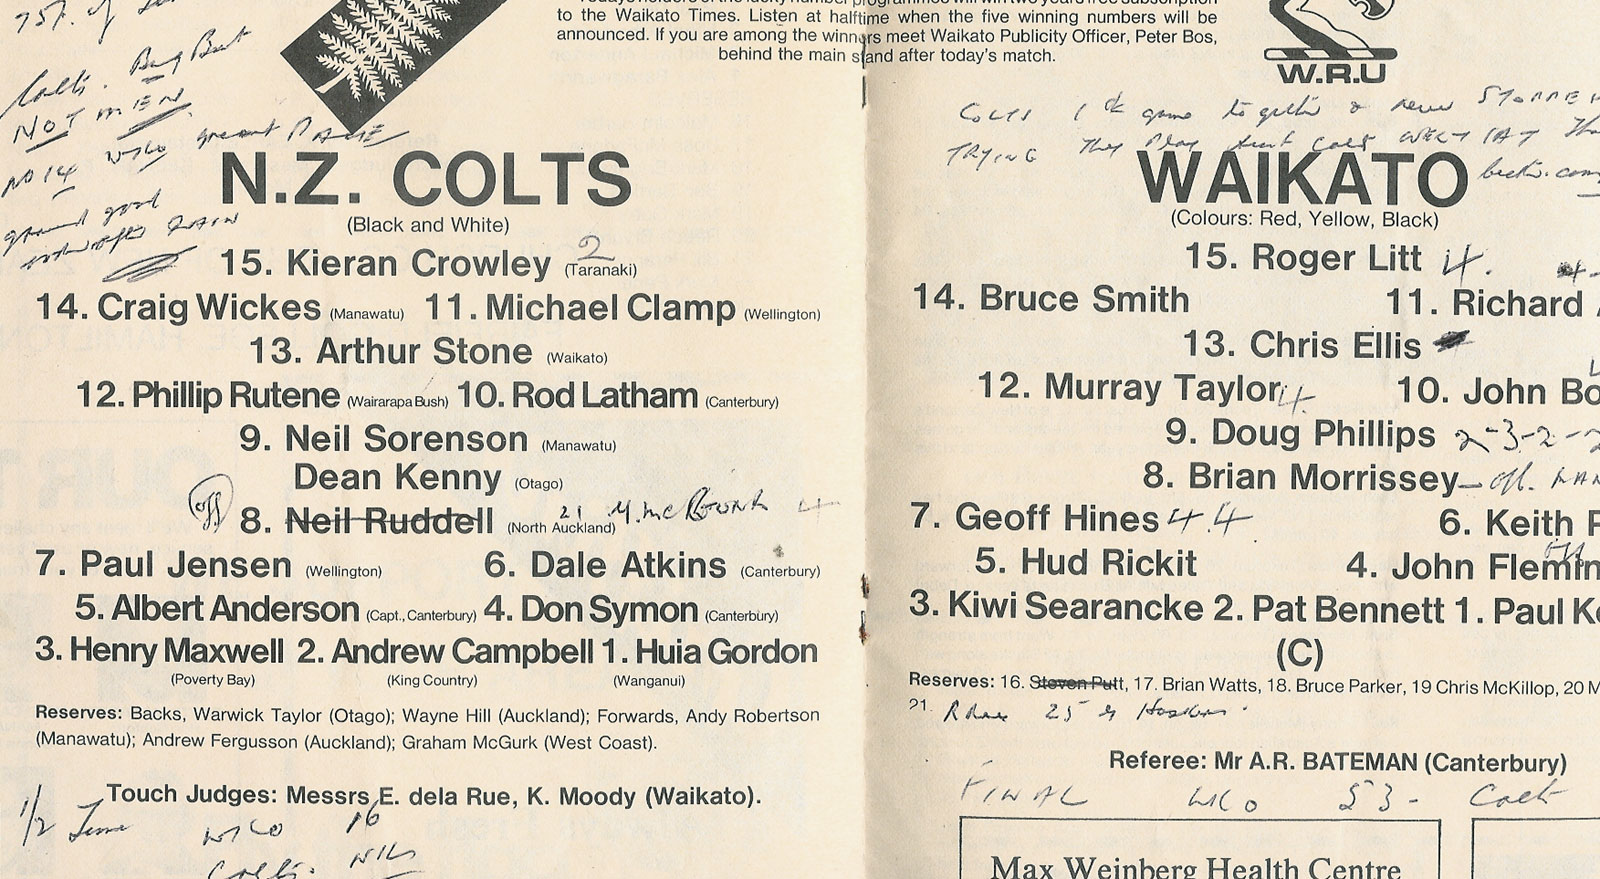 to the Waikato Times. Listen at halftime when the five winning numbers will be
announced. If you are among the winners meet Waikato Publicity Officer, Peter Bos,
behind the main stand after today's match.
W.R.U
Colts. Big But
NOT MEN
NO 14
good
RAIN
N.Z. COLTS
(Black and White)
15. Kieran Crowley (Taranaki) 2
14. Craig Wickes (Manawatu) 11. Michael Clamp (Wellington)
13. Arthur Stone (Waikato)
12. Phillip Rutene (Wairarapa Bush) 10. Rod Latham (Canterbury)
9. Neil Sorenson (Manawatu)
Dean Kenny (Otago)
off 8. Neil Ruddell (North Auckland) 21 4
7. Paul Jensen (Wellington) 6. Dale Atkins (Canterbury)
5. Albert Anderson (Capt., Canterbury) 4. Don Symon (Canterbury)
3. Henry Maxwell 2. Andrew Campbell 1. Huia Gordon
(Poverty Bay) (King Country) (Wanganui)
Reserves: Backs, Warwick Taylor (Otago); Wayne Hill (Auckland); Forwards, Andy Robertson
(Manawatu); Andrew Fergusson (Auckland); Graham McGurk (West Coast).
Touch Judges: Messrs E. dela Rue, K. Moody (Waikato).
1/2 Time WKO 16
Colts. NIL
COLTS 1st game together
TRYING They Play
WAIKATO
(Colours: Red, Yellow, Black)
15. Roger Litt 4.
14. Bruce Smith 11. Richard
13. Chris Ellis
12. Murray Taylor 4. 10. John Bo
9. Doug Phillips 2-3-2-2
8. Brian Morrissey - off.
7. Geoff Hines 4.4 6. Keith
5. Hud Rickit 4. John Flemin off
3. Kiwi Searancke 2. Pat Bennett 1. Paul
(C)
Reserves: 16. Steven Putt, 17. Brian Watts, 18. Bruce Parker, 19 Chris McKillop, 20 M
21. 25
Referee: Mr A.R. BATEMAN (Canterbury)
FINAL WKO 53 - Colt
Max Weinberg Health Centre